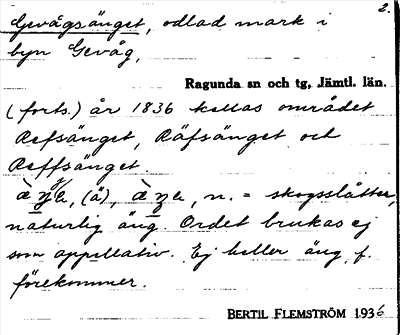 2.
Gevågsänget, odlad mark i
byn Gevåg,
Ragunda sn och tg, Jämtl. län.
(forts.) år 1836 kallas området
Refsänget, Räfsänget och
Reffsänget
(ä), n. = skogsslåtter,
naturlig äng. Ordet brukas ej
som appellativ. Ej heller äng, f.
förekommer.
BERTIL FLEMSTRÖM 1936